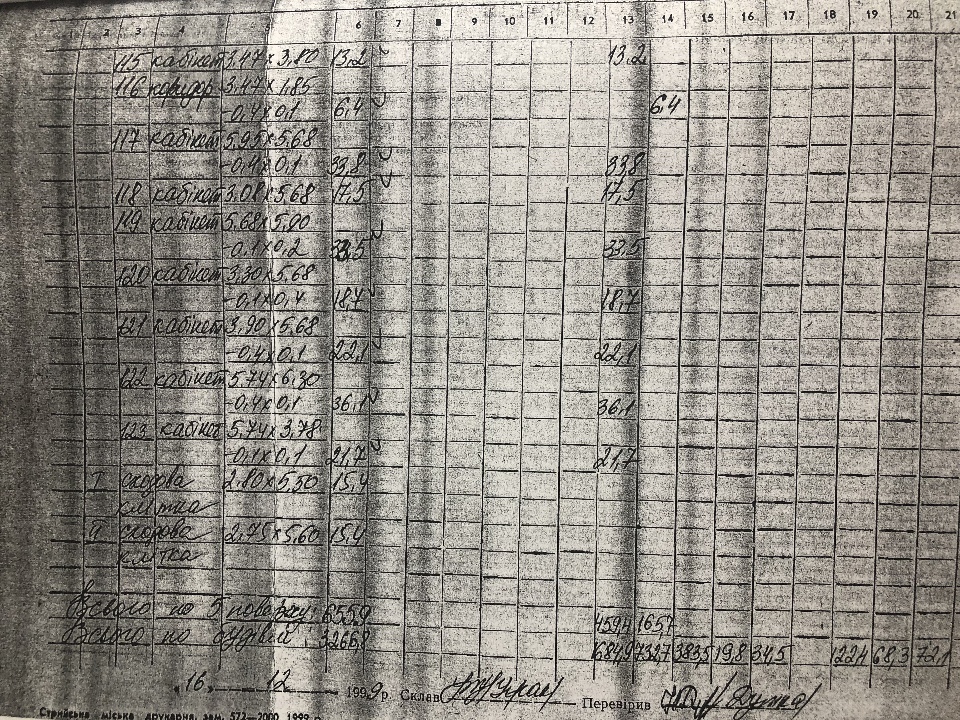 2 3 4 5 6 7 8 9 10 11 12 13 14 15 16 17 18 19 20 21
115 кабінет 3,47 х 3,80 13,2 13,2
116 коридор 3,47 х 1,85
-0,4 х 0,1 6,4 6,4
117 кабінет 5,95 х 5,68
-0,4 х 0,1 33,8 33,8
118 кабінет 3,08 х 5,68 17,5 17,5
119 кабінет 5,68 х 5,90
-0,1 х 0,2 33,5 33,5
120 кабінет 3,30 х 5,68
-0,1 х 0,4 18,7 18,7
121 кабінет 3,90 х 5,68
-0,4 х 0,1 22,1 22,1
122 кабінет 5,74 х 6,30
-0,4 х 0,1 36,1 36,1
123 кабінет 5,74 х 3,78
-0,1 х 0,1 21,7 21,7
І сходова 2,80 х 5,50 15,4
клітка
ІІ сходова 2,75 х 5,60 15,4
клітка
Всього по 5 поверху: 655,9 459,4 165,7
Всього по будівлі: 3266,8 1684,9 732,7 383,5 19,8 34,5 122,4 68,3 72,1
„16„ 12 1999 р. Склав Перевірив
Стрийська міська друкарня, зам. 572—2000 1999 р.